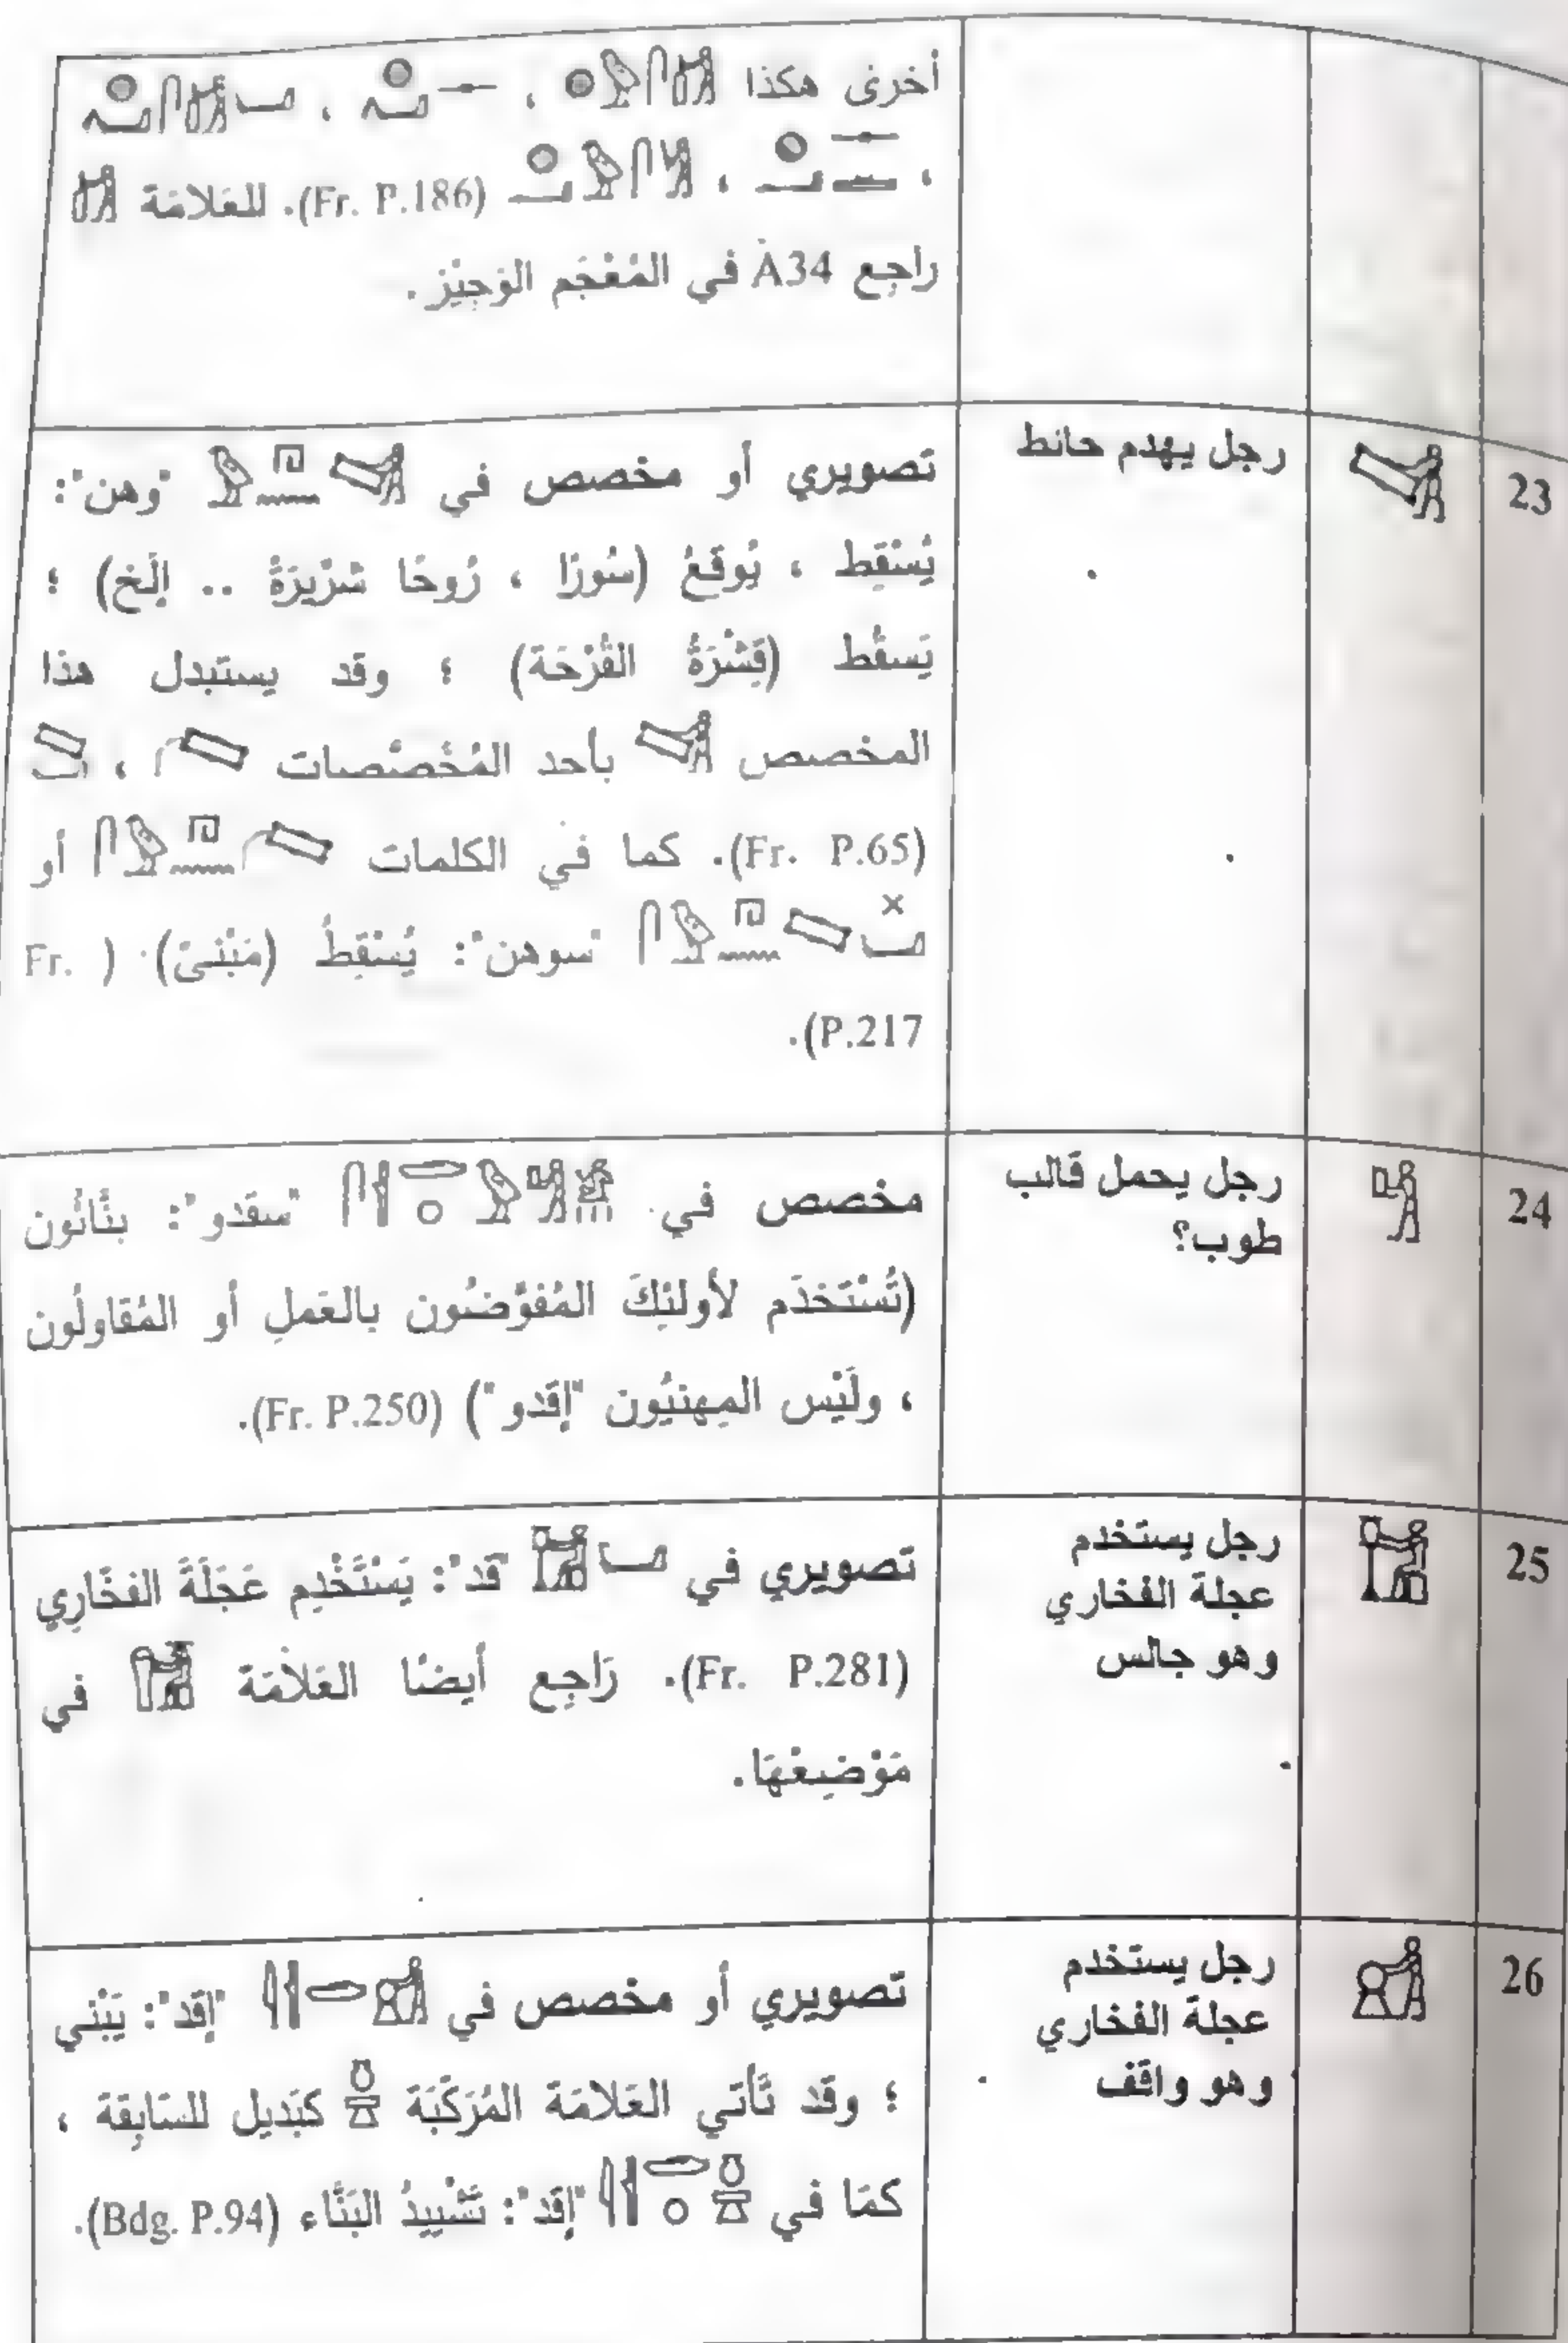 أخرى هكذا ، ،
، ، (Fr. P.186). للعَلامَة
راجِع A34 في المُعْجَم الوَجِيْز.
23
رجل يهدم حائط
تصويري أو مخصص في "وهن":
يُسْقِط ، يُوقَعُ (سُورًا ، رُوحًا شرِّيرَةً .. إلَخ) ؛
يَسقُط (قِشْرَةُ القُرْحَة) ؛ وقد يستبدل هذا
المخصص بأحد المُخَصّصات ،
(Fr. P.65). كما في الكلمات أو
"سوهن": يُسْقِطُ (مَبْنىً) (Fr.
P.217).
24
رجل يحمل قالب
طوب؟
مخصص في "سقدو": بنَّائُون
(تُسْتَخدَم لأولئِكَ المُفوَّضُون بالعَملِ أو المُقاولُون
، ولَيْس المِهنيُون "إقَدو") (Fr. P.250).
25
رجل يستخدم
عجلة الفخاري
وهو جالس
تصويري في "قد": يَسْتَخْدِم عَجَلَةَ الفخَّارِي
(Fr. P.281). رَاجِع أيضًا العَلامَة في
مَوْضِعْهَا.
26
رجل يستخدم
عجلة الفخاري
وهو واقف
تصويري أو مخصص في "إقَد": يَبْني
؛ وقد تَأتي العَلامَة المُرَكَّبَة كبَديل للسَابِقة ،
كمَا في "إقَد": تَشْييدُ البَنَّاء (Bdg. P.94).